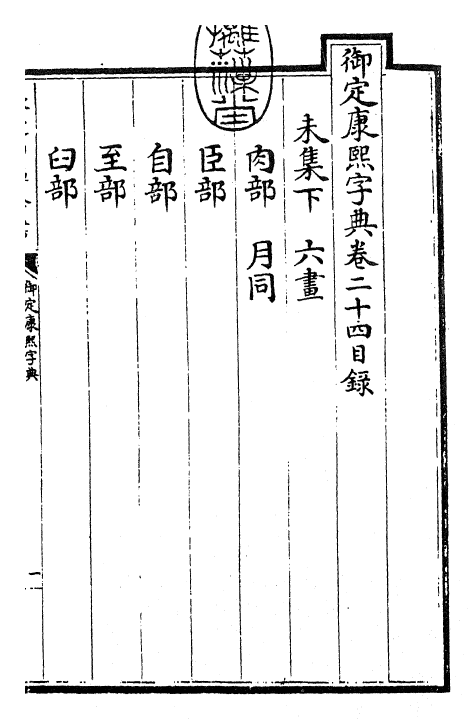 御定康熙字典卷二十四目錄
未集下　六畫
肉部　月同
臣部
自部
至部
臼部
御定康熙字典
一